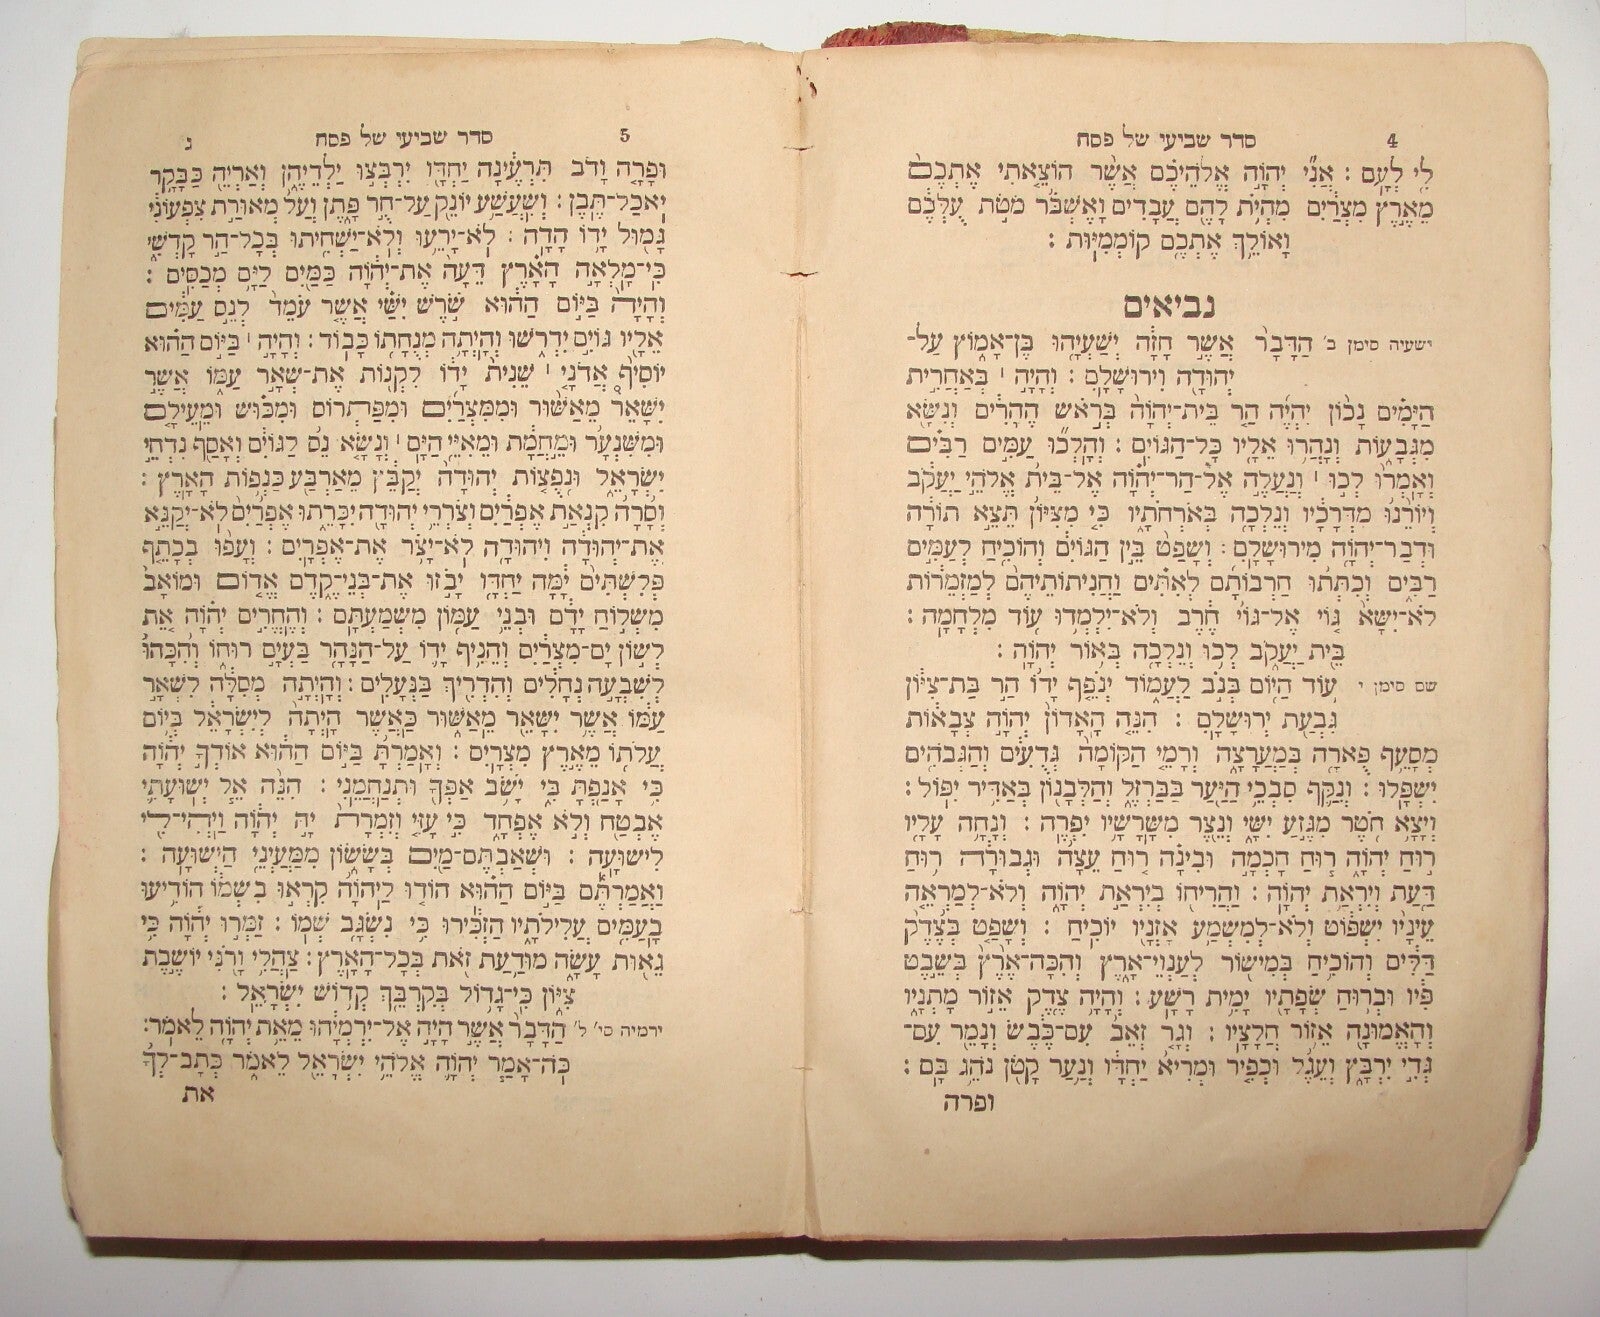 4 סדר שביעי של פסח
לִ֖י לְעָֽם : אֲנִ֞י יְהוָ֣ה אֱלֹֽהֵיכֶ֗ם אֲשֶׁ֨ר הוֹצֵ֤אתִי אֶתְכֶם֙
מֵאֶ֣רֶץ מִצְרַ֔יִם מִֽהְיֹ֥ת לָהֶ֖ם עֲבָדִ֑ים וָאֶשְׁבֹּר֙ מֹטֹ֣ת עֻלְּכֶ֔ם
וָאוֹלֵ֥ךְ אֶתְכֶ֖ם קֽוֹמְמִיּֽוּת :
נביאים
ישעיה סימן ב' הַדָּבָר֙ אֲשֶׁ֣ר חָזָ֔ה יְשַֽׁעְיָ֖הוּ בֶּן־אָמ֑וֹץ עַל־
יְהוּדָ֖ה וִירֽוּשָׁלִָֽם : וְהָיָ֣ה ׀ בְּאַחֲרִ֣ית
הַיָּמִ֗ים נָכ֨וֹן יִֽהְיֶ֜ה הַ֤ר בֵּית־יְהוָֹה֙ בְּרֹ֣אשׁ הֶֽהָרִ֔ים וְנִשָּׂ֖א
מִגְּבָע֑וֹת וְנָהֲר֥וּ אֵלָ֖יו כָּל־הַגּוֹיִֽם : וְהָֽלְכ֞וּ עַמִּ֣ים רַבִּ֗ים
וְאָֽמְרוּ֙ לְכ֣וּ ׀ וְנַעֲלֶ֣ה אֶל־הַר־יְהוָֹ֗ה אֶל־בֵּית֙ אֱלֹהֵ֣י יַעֲקֹ֔ב
וְיוֹרֵ֨נוּ֙ מִדְּרָכָ֔יו וְנֵלְכָ֖ה בְּאֹרְחֹתָ֑יו כִּ֤י מִצִּיּוֹן֙ תֵּצֵ֣א תוֹרָ֔ה
וּדְבַר־יְהוָֹ֖ה מִירֽוּשָׁלִָֽם : וְשָׁפַט֙ בֵּ֣ין הַגּוֹיִ֔ם וְהוֹכִ֖יחַ לְעַמִּ֣ים
רַבִּ֑ים וְכִתְּת֨וּ חַרְבוֹתָ֜ם לְאִתִּ֗ים וַחֲנִיתֽוֹתֵיהֶם֙ לְמַזְמֵר֔וֹת
לֹֽא־יִשָּׂ֨א ג֤וֹי אֶל־גּוֹי֙ חֶ֔רֶב וְלֹא־יִלְמְד֥וּ ע֖וֹד מִלְחָמָֽה :
בֵּ֖ית יַעֲקֹ֑ב לְכ֥וּ וְנֵלְכָ֖ה בְּא֥וֹר יְהוָֹֽה :
שם סימן י' ע֥וֹד הַיּ֖וֹם בְּנֹ֣ב לַֽעֲמֹ֑וד יְנֹפֵ֤ף יָדוֹ֙ הַ֣ר בַּת־צִיּ֔וֹן
גִּבְעַ֖ת יְרוּשָׁלִָֽם : הִנֵּ֤ה הָֽאָדוֹן֙ יְהוָֹ֣ה צְבָא֔וֹת
מְסָעֵ֥ף פֻּארָ֖ה בְּמַֽעֲרָצָ֑ה וְרָמֵ֤י הַקּוֹמָה֙ גְּדֻעִ֔ים וְהַגְּבֹהִ֖ים
יִשְׁפָּֽלוּ : וְנִקַּ֛ף סִבְכֵ֥י הַיַּ֖עַר בַּבַּרְזֶ֑ל וְהַלְּבָנ֖וֹן בְּאַדִּ֥יר יִפּֽוֹל :
וְיָצָ֥א חֹ֖טֶר מִגֵּ֣זַע יִשָׁ֑י וְנֵ֖צֶר מִשָּׁרָשָׁ֥יו יִפְרֶֽה : וְנָחָ֥ה עָלָ֖יו
ר֣וּחַ יְהוָֹ֑ה ר֧וּחַ חָכְמָ֣ה וּבִינָ֗ה ר֤וּחַ עֵצָה֙ וּגְבוּרָ֔ה ר֥וּחַ
דַּ֖עַת וְיִרְאַ֥ת יְהוָֹֽה : וַהֲרִיח֖וֹ בְּיִרְאַ֣ת יְהוָֹ֑ה וְלֹֽא־לְמַרְאֵ֤ה
עֵינָיו֙ יִשְׁפּ֔וֹט וְלֹֽא־לְמִשְׁמַ֥ע אָזְנָ֖יו יוֹכִֽיחַ : וְשָׁפַ֤ט בְּצֶ֨דֶק֙
דַּלִּ֔ים וְהוֹכִ֥יחַ בְּמִישׁ֖וֹר לְעַנְוֵי־אָ֑רֶץ וְהִכָּֽה־אֶ֨רֶץ֙ בְּשֵׁ֣בֶט
פִּ֔יו וּבְר֥וּחַ שְׂפָתָ֖יו יָמִ֥ית רָשָֽׁע : וְהָ֥יָה צֶ֖דֶק אֵז֣וֹר מָתְנָ֑יו
וְהָאֱמוּנָ֖ה אֵז֥וֹר חֲלָצָֽיו : וְגָ֤ר זְאֵב֙ עִם־כֶּ֔בֶשׂ וְנָמֵ֖ר עִם־
גְּדִ֣י יִרְבָּ֑ץ וְעֵ֨גֶל וּכְפִ֤יר וּמְרִיא֙ יַחְדָּ֔ו וְנַ֥עַר קָטֹ֖ן נֹהֵ֥ג בָּֽם :
ופרה
5 סדר שביעי של פסח ג
וּפָרָ֤ה וָדֹב֙ תִּרְעֶ֔ינָה יַחְדָּ֖ו יִרְבְּצ֣וּ יַלְדֵיהֶ֑ן וְאַרְיֵ֖ה כַּבָּקָ֥ר
יֹֽאכַל־תֶּֽבֶן : וְשִֽׁעֲשַׁ֥ע יוֹנֵ֖ק עַל־חֻ֣ר פָּ֑תֶן וְעַל֙ מְאוּרַ֣ת צִפְעוֹנִ֔י
גָּמ֖וּל יָד֥וֹ הָדָֽה : לֹֽא־יָרֵ֥עוּ וְלֹֽא־יַשְׁחִ֖יתוּ בְּכָל־הַ֣ר קָדְשִׁ֑י
כִּֽי־מָלְאָ֣ה הָאָ֗רֶץ דֵּעָה֙ אֶת־יְהוָֹ֔ה כַּמַּ֖יִם לַיָּ֥ם מְכַסִּֽים :
וְהָיָה֙ בַּיּ֣וֹם הַה֔וּא שֹׁ֣רֶשׁ יִשַׁ֗י אֲשֶׁ֤ר עֹמֵד֙ לְנֵ֣ס עַמִּ֔ים
אֵלָ֖יו גּוֹיִ֣ם יִדְרֹ֑שׁוּ וְהָיְתָ֥ה מְנֻחָת֖וֹ כָּבֽוֹד : וְהָיָ֣ה ׀ בַּיּ֣וֹם הַה֗וּא
יוֹסִ֨יף אֲדֹנָ֤י ׀ שֵׁנִית֙ יָד֔וֹ לִקְנ֖וֹת אֶת־שְׁאָ֣ר עַמּ֑וֹ אֲשֶׁ֣ר
יִשָּׁאֵר֩ מֵאַשּׁ֨וּר וּמִמִּצְרַ֜יִם וּמִפַּתְר֣וֹס וּמִכּ֗וּשׁ וּמֵעֵילָ֤ם
וּמִשִּׁנְעָר֙ וּמֵ֣חֲמָ֔ת וּמֵאִיֵּ֖י הַיָּֽם ׀ וְנָשָׂ֥א נֵס֙ לַגּוֹיִ֔ם וְאָסַ֖ף נִדְחֵ֣י
יִשְׂרָאֵ֑ל וּנְפֻצ֤וֹת יְהוּדָה֙ יְקַבֵּ֔ץ מֵאַרְבַּ֖ע כַּנְפ֥וֹת הָאָֽרֶץ :
וְסָרָה֙ קִנְאַ֣ת אֶפְרַ֔יִם וְצֹרְרֵ֥י יְהוּדָ֖ה יִכָּרֵ֑תוּ אֶפְרַ֨יִם֙ לֹֽא־יְקַנֵּ֣א
אֶת־יְהוּדָ֔ה וִֽיהוּדָ֖ה לֹֽא־יָצֹ֥ר אֶת־אֶפְרָֽיִם : וְעָפ֨וּ בְכָתֵ֤ף
פְּלִשְׁתִּים֙ יָ֔מָּה יַחְדָּ֖ו יָבֹ֣זּוּ אֶת־בְּנֵי־קֶ֑דֶם אֱד֤וֹם וּמוֹאָב֙
מִשְׁל֣וֹחַ יָדָ֔ם וּבְנֵ֥י עַמּ֖וֹן מִשְׁמַעְתָּֽם : וְהֶחֱרִ֣ים יְהוָֹ֗ה אֵ֚ת
לְשׁ֣וֹן יָם־מִצְרַ֔יִם וְהֵנִ֥יף יָד֛וֹ עַל־הַנָּהָ֖ר בַּעְיָ֣ם רוּח֑וֹ וְהִכָּ֨הוּ֙
לְשִׁבְעָ֣ה נְחָלִ֔ים וְהִדְרִ֖יךְ בַּנְּעָלִֽים : וְהָיְתָ֣ה מְסִלָּ֔ה לִשְׁאָ֣ר
עַמּ֔וֹ אֲשֶׁ֥ר יִשָּׁאֵ֖ר מֵאַשּׁ֑וּר כַּאֲשֶׁ֤ר הָֽיְתָה֙ לְיִשְׂרָאֵ֔ל בְּי֥וֹם
עֲלֹת֖וֹ מֵאֶ֥רֶץ מִצְרָֽיִם : וְאָֽמַרְתָּ֙ בַּיּ֣וֹם הַה֔וּא אוֹדְךָ֣ יְהוָֹ֔ה
כִּ֥י אָנַ֖פְתָּ בִּ֑י יָשֹׁ֥ב אַפְּךָ֖ וּתְנַחֲמֵֽנִי : הִנֵּ֨ה אֵ֧ל יְשׁוּעָתִ֛י
אֶבְטַ֖ח וְלֹ֣א אֶפְחָ֑ד כִּ֣י עָזִּ֤י וְזִמְרָת֙ יָ֣הּ יְהוָֹ֔ה וַֽיְהִי־לִ֖י
לִישׁוּעָֽה : וּשְׁאַבְתֶּם־מַ֖יִם בְּשָׂשׂ֑וֹן מִמַּעַיְנֵ֖י הַיְשׁוּעָֽה :
וַאֲמַרְתֶּ֞ם בַּיּ֣וֹם הַה֗וּא הוֹד֤וּ לַֽיהוָֹה֙ קִרְא֣וּ בִשְׁמ֔וֹ הוֹדִ֥יעוּ
בָֽעַמִּ֖ים עֲלִֽילֹתָ֑יו הַזְכִּ֕ירוּ כִּ֥י נִשְׂגָּ֖ב שְׁמֽוֹ : זַמְּר֣וּ יְהוָֹ֔ה כִּ֥י
גֵא֖וּת עָשָׂ֑ה מוּדַ֥עַת זֹ֖את בְּכָל־הָאָֽרֶץ : צַהֲלִ֥י וָרֹ֖נִּי יוֹשֶׁ֣בֶת
צִיּ֑וֹן כִּֽי־גָד֥וֹל בְּקִרְבֵּ֖ךְ קְד֥וֹשׁ יִשְׂרָאֵֽל :
ירמיה סי' ל' הַדָּבָר֙ אֲשֶׁ֣ר הָיָ֣ה אֶֽל־יִרְמְיָ֔הוּ מֵאֵ֥ת יְהוָֹ֖ה לֵאמֹֽר:
כֹּֽה־אָמַ֧ר יְהוָֹ֛ה אֱלֹהֵ֥י יִשְׂרָאֵ֖ל לֵאמֹ֑ר כְּתָב־לְךָ֗
את